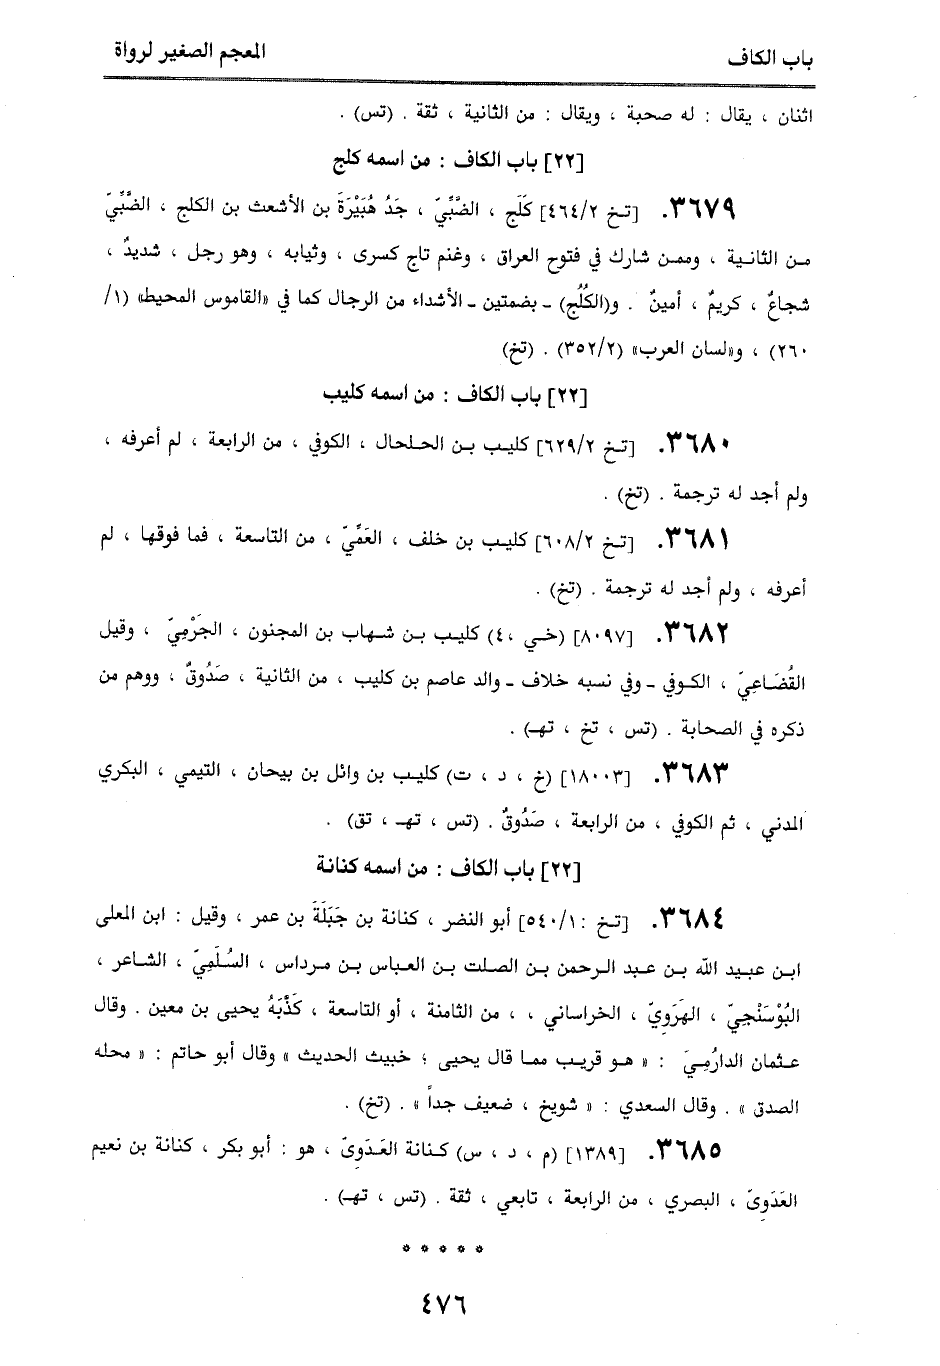 باب الكاف
المعجم الصغير لرواة
اثنان ، يقال : له صحبة ، ويقال : من الثانية ، ثقة . (تس) .
[٢٢] باب الكاف : من اسمه كلج
٣٦٧٩. [تخ ٤٦٤/٢] كَلَج ، الضَّبِّيّ ، جَدُ هُبَيْرَةَ بن الأشعث بن الكلج ، الضَّبِّيّ
من الثانية ، وممن شارك في فتوح العراق ، وغنم تاج كسرى ، وثيابه ، وهو رجل ، شديدٌ ،
شجاعٌ ، كريمٌ ، أمينٌ . و(الكُلُج) ـ بضمتين ـ الأشداء من الرجال كما في «القاموس المحيط» (١/
٢٦٠) ، و«لسان العرب» (٣٥٢/٢) . (تخ)
[٢٢] باب الكاف : من اسمه كليب
٣٦٨٠. [تخ ٦٢٩/٢] كليب بن الحلحال ، الكوفي ، من الرابعة ، لم أعرفه ،
ولم أجد له ترجمة . (تخ) .
٣٦٨١. [تخ ٦٠٨/٢] كليب بن خلف ، العَمِّيّ ، من التاسعة ، فما فوقها ، لم
أعرفه ، ولم أجد له ترجمة . (تخ) .
٣٦٨٢. [٨٠٩٧] (خي ،٤) كليب بن شهاب بن المجنون ، الجَرْمِيّ ، وقيل
القُضَاعِيّ ، الكوفي ـ وفي نسبه خلاف ـ والد عاصم بن كليب ، من الثانية ، صَدُوقٌ ، ووهم من
ذكره في الصحابة . (تس ، تخ ، تهـ) .
٣٦٨٣. [١٨٠٠٣] (خ ، د ، ت) كليب بن وائل بن بيحان ، التيمي ، البكري
المدني ، ثم الكوفي ، من الرابعة ، صَدُوقٌ . (تس ، تهـ ، تق) .
[٢٢] باب الكاف : من اسمه كنانة
٣٦٨٤. [تخ : ٥٤٠/١] أبو النضر ، كنانة بن جَبَلَةَ بن عمر ، وقيل : ابن المعلى
ابن عبيد الله بن عبد الرحمن بن الصلت بن العباس بن مرداس ، السُلَمِيّ ، الشاعر ،
البُوْسَنْجِيّ ، الهَرَوِيّ ، الخراساني ، ، من الثامنة ، أو التاسعة ، كَذَّبَهُ يحيى بن معين . وقال
عثمان الدارُمِيّ : « هو قريب مما قال يحيى ؛ خبيث الحديث » وقال أبو حاتم : « محله
الصدق » . وقال السعدي : « شويخ ، ضعيف جداً » . (تخ) .
٣٦٨٥. [١٣٨٩] (م ، د ، س) كنانة العَدَوِيّ ، هو : أبو بكر ، كنانة بن نعيم
العَدَوِيّ ، البصري ، من الرابعة ، تابعي ، ثقة . (تس ، تهـ) .
* * * * *
٤٧٦